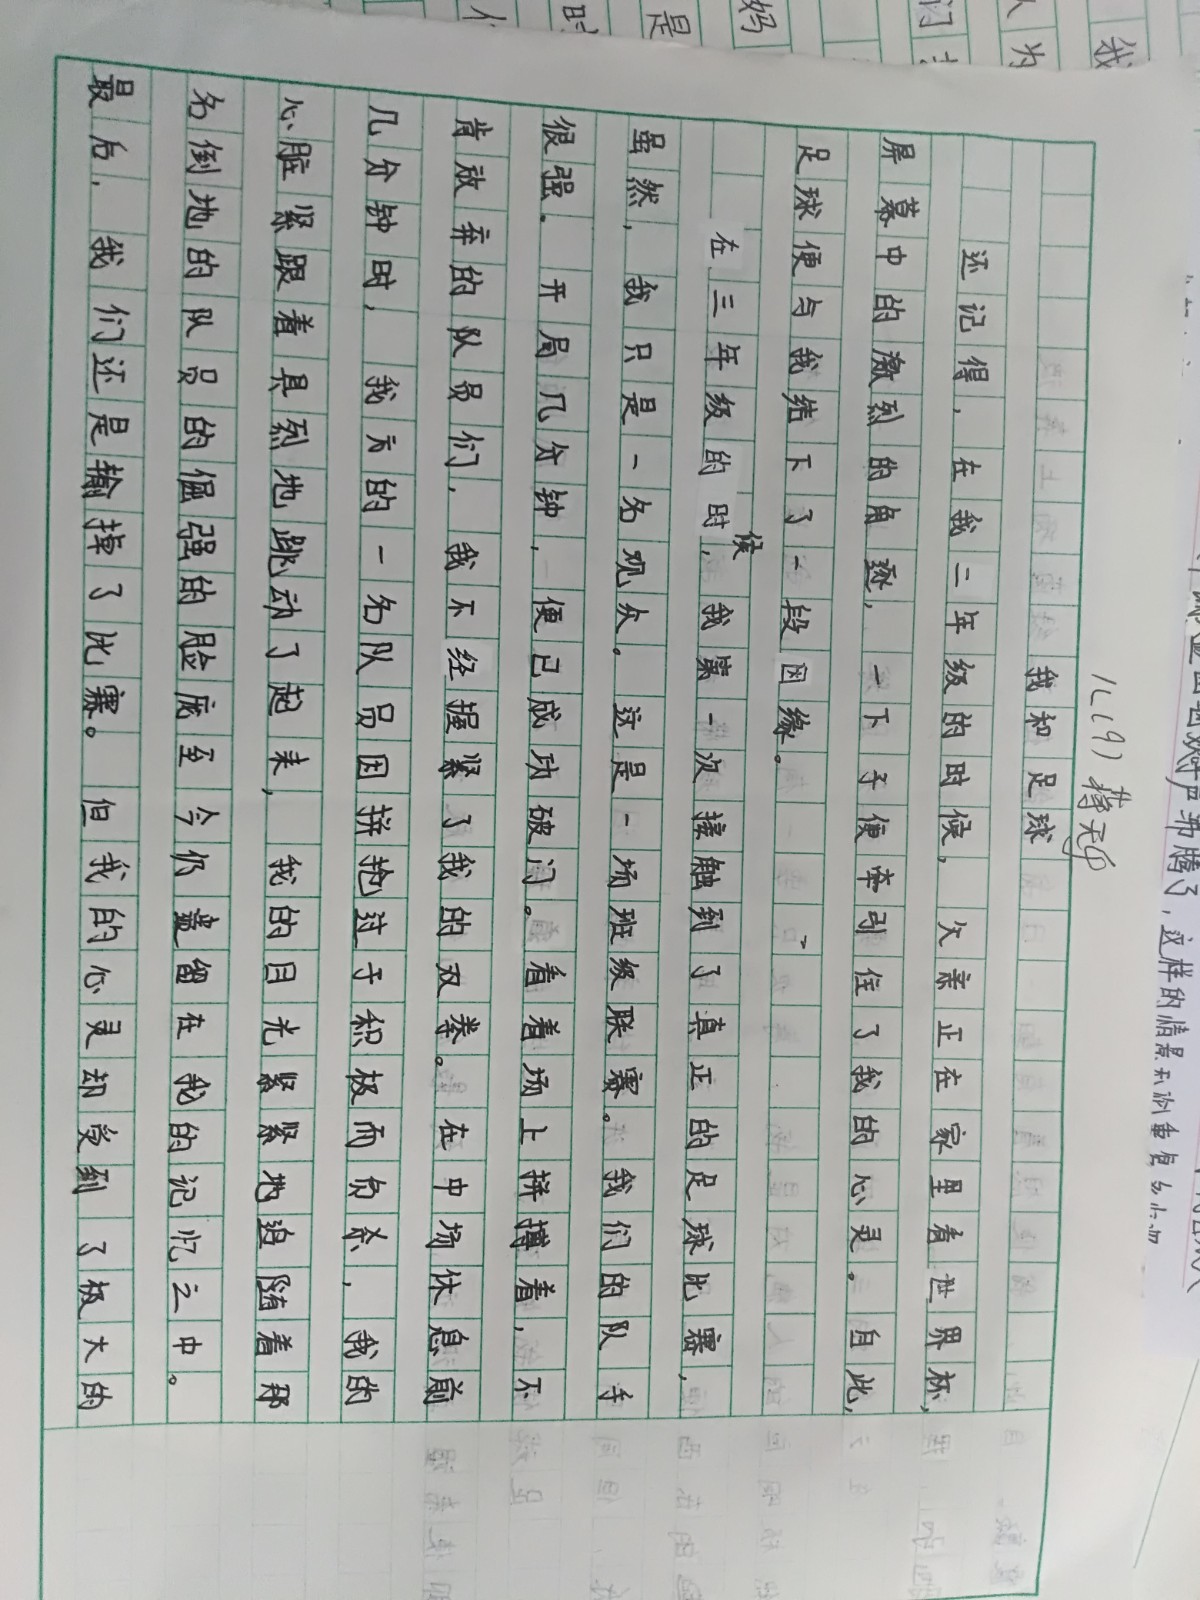 八(9) 蒋无
我和足球
还记得，在我二年级的时候，父亲正在家里看世界杯，
屏幕中的激烈的角逐，一下子便牵引住了我的心灵。自此，
足球便与我结下了一段因缘。
在三年级的时候，我第一次接触到了真正的足球比赛，
虽然，我只是一名观众。这是一场班级联赛。我们的队手
很强。开局几分钟，便已成功破门。看着场上拼搏着，不
肯放弃的队员们，我不经握紧了我的双拳。在中场休息前
几分钟时，我方的一名队员因拼抢过于积极而负杀，我的
心脏紧跟着具烈地跳动了起来，我的目光紧紧地追随着那
名倒地的队员的倔强的脸庞至今仍遗留在我的记忆之中。
最后，我们还是输掉了比赛。但我的心灵却受到了极大的
这样的情景
我
为
们
妈
是
时